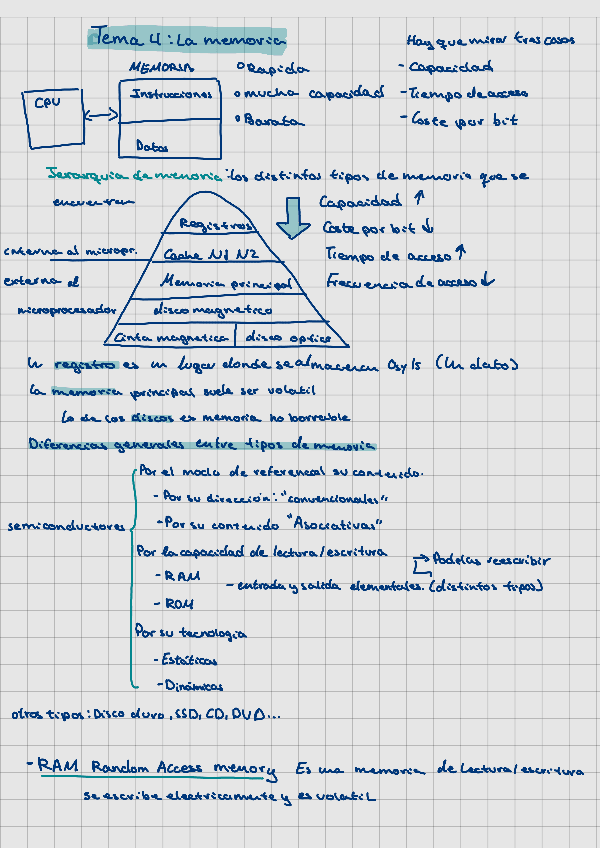 Tema 4: La memoria
Hay que mirar tres cosas
- Capacidad
- Tiempo de acceso
- Coste por bit
CPU
MEMORIA
Instrucciones
Datos
Rapida
mucha capacidad
Barata
Jerarquia de memoria: los distintos tipos de memoria que se
encuentran
Capacidad ↑
Coste por bit ↓
Tiempo de acceso ↑
Frecuencia de acceso ↓
Registros
interna al micropr.
Cache N1 N2
externa al
microprocesador
Memoria principal
disco magnetico
Cinta magnetica
disco optico
Un registro es un lugar donde se almacenan 0s y 1s (Un dato)
La memoria principal suele ser volatil
La de los discos es memoria no borrable
Diferencias generales entre tipos de memoria
semiconductores
Por el modo de referencial su contenido.
- Por su dirección: "convencionales"
- Por su contenido "Asociativas"
Por la capacidad de lectura/escritura
→ Podelas reescribir
- RAM
- entrada y salida elementales. (distintos tipos)
- ROM
Por su tecnologia
- Estáticas
- Dinámicas
otros tipos: Disco duro, SSD, CD, DVD...
- RAM Random Access memory Es una memoria de Lectura/escritura
se escribe electricamente y es volatil